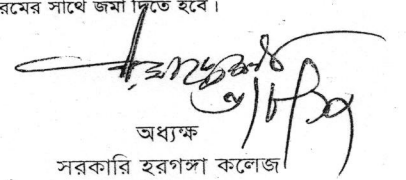 রমের সাথে জমা দিতে হবে।
অধ্যক্ষ
সরকারি হরগঙ্গা কলেজ